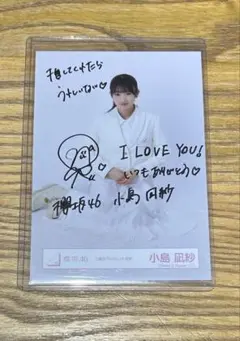 推してくれたら
うれしいな♡
I LOVE YOU!
いつもありがとう♡
櫻坂46 小島凪紗
櫻坂46
小島 凪紗